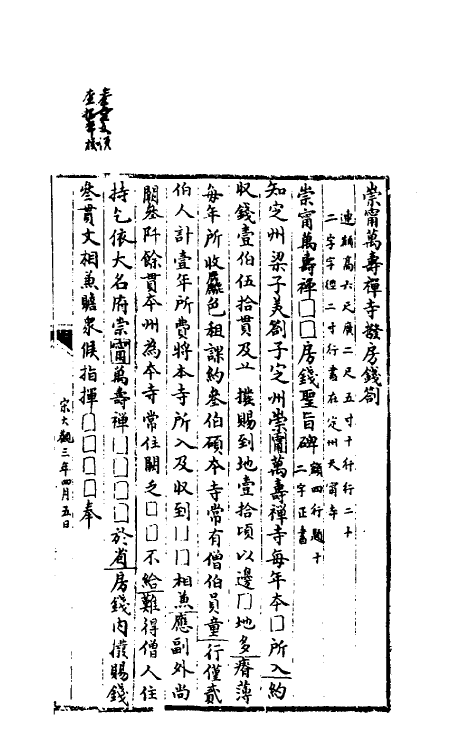 崇甯萬壽禪寺撥房錢劄
連額高六尺廣二尺五寸十行行二十
二字字徑二寸行書在定州天甯寺
崇甯萬壽禪□□房錢聖旨碑
額四行題十
二字正書
知定州梁子美劄子定州崇甯萬壽禪寺每年本□所入約
收錢壹伯伍拾貫及 撥賜到地壹拾頃以邊□地多瘠薄
每年所收 色租課約叁伯碩本寺常有僧伯員童行僅貳
伯人計壹年所費將本寺所入及收到□□相兼應副外尚
闕叁阡餘貫本州為本寺常住闕乏□□不給難得僧人住
持乞依大名府崇甯萬壽禪□□□□於省房錢內撥賜錢
叁貫文相兼贍眾候指揮□□□□奉
宋大觀三年四月五日